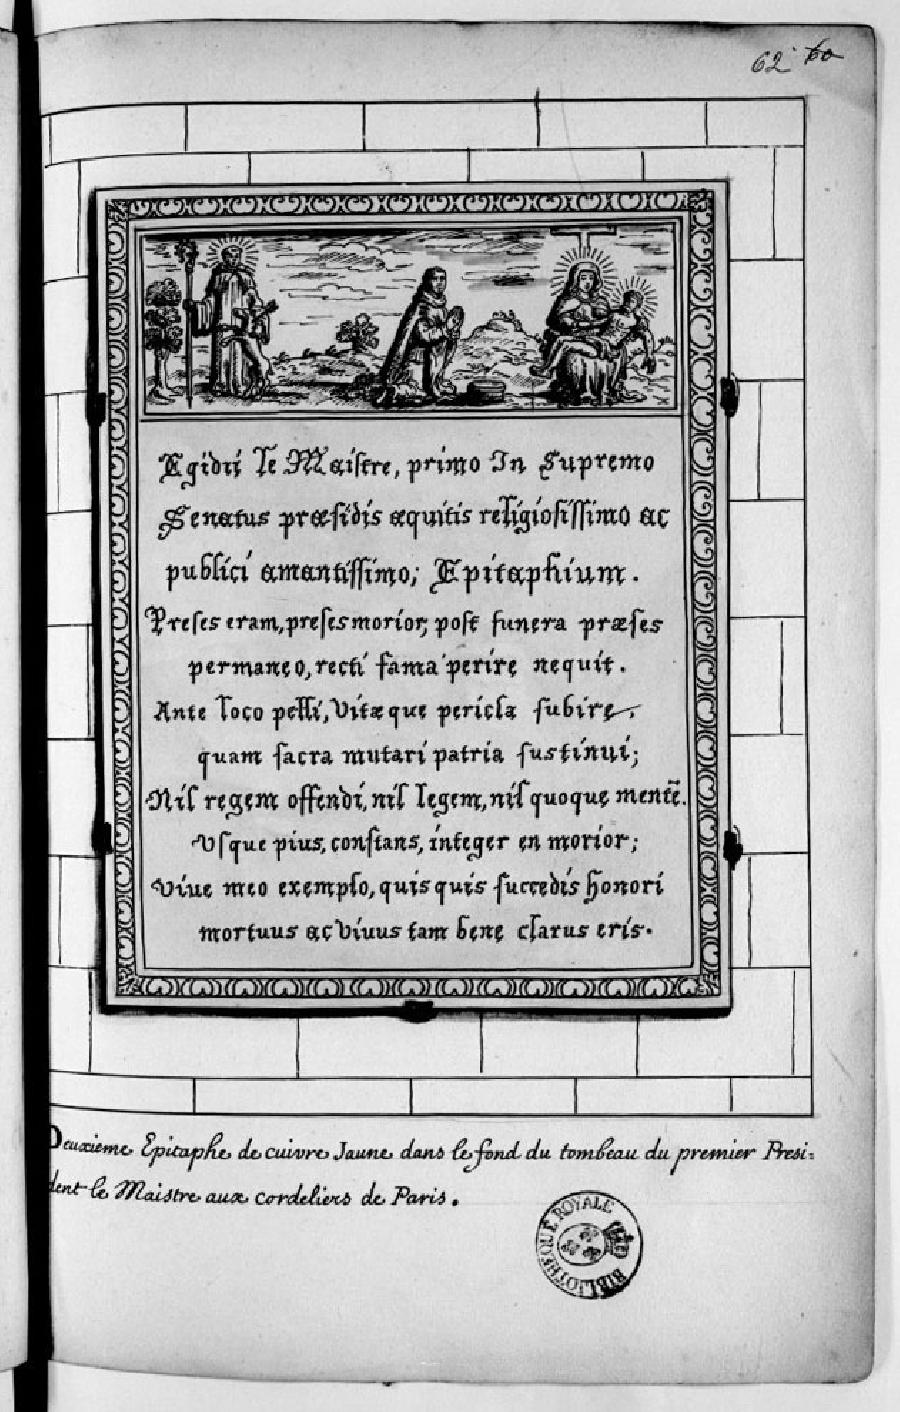 62 60
Egidii le Maistre, primo In Supremo
Senatus præsidis æquitis religiosissimo ac
publici amantissimo; Epitaphium.
Preses eram, preses morior, post funera præses
permaneo, recti fama perire nequit.
Ante loco pelli, Vitæque pericla subire,
quam sacra mutari patria sustinui;
Nil regem offendi, nil legem, nil quoque mentẽ.
Vsque pius, constans, integer en morior;
Viue meo exemplo, quisquis succedis honori
mortuus ac Viuus tam bene clarus eris.
Deuxieme Epitaphe de cuivre Jaune dans le fond du tombeau du premier Presi=
dent le Maistre aux cordeliers de Paris.
BIBLIOTHEQUE ROYALE